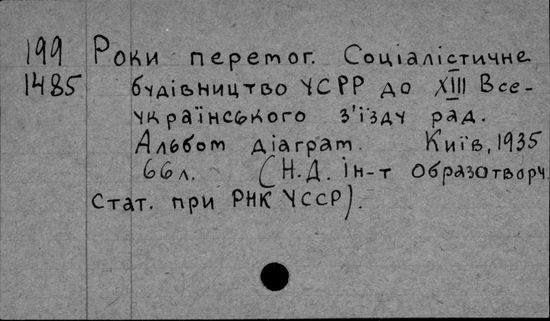 199 Роки перемог. Соціалістичне
1485 будівництво УСРР до XIII Все-
українського з'їзду рад.
Альбом діаграм. Київ, 1935
66 л. (Н.Д. Ін-т Образотворч.
Стат. при РНК УССР).